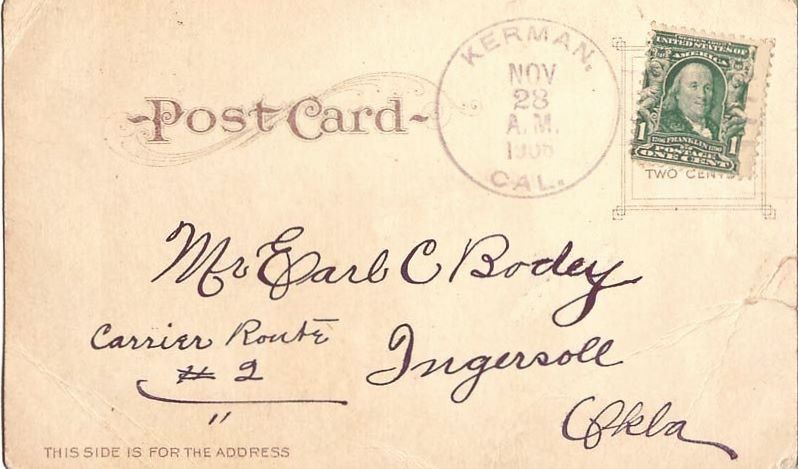 KERMAN,
NOV
28
A.M.
CAL.
SERIES 1902
UNITED STATES OF
AMERICA
1 1
1706 FRANKLIN 1790
POSTAGE
ONE CENT
TWO CENTS
-Post Card-
Mr Earl C Bodey
Carrier Route
# 2
"
Ingersoll
Okla
THIS SIDE IS FOR THE ADDRESS